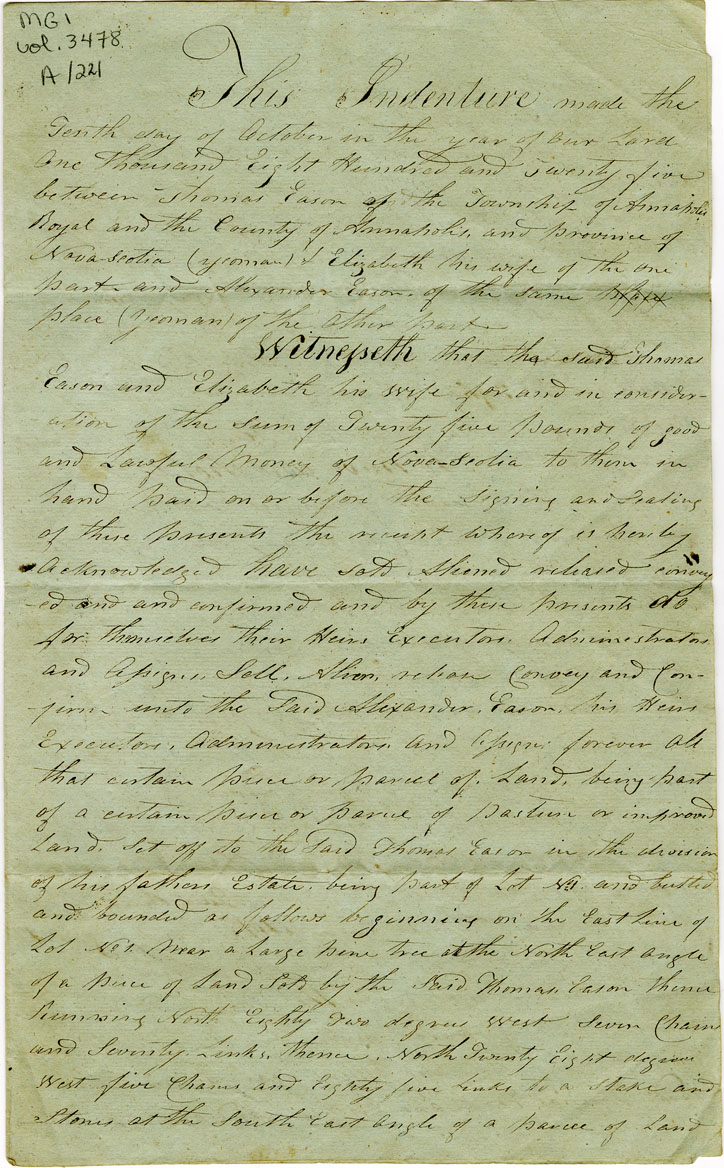 MG1
vol. 3478
A/221
This Indenture made the
Tenth day of October in the year of our Lord
One Thousand Eight Hundred and Twenty five
between Thomas Eason of the Township of Annapolis
Royal and the County of Annapolis, and province of
Nova-Scotia (yeoman) & Elizabeth his wife of the one
part and Alexander Eason, of the same
place (yeoman) of the other part
Witnesseth that the said Thomas
Eason and Elizabeth his wife for and in consider-
ation of the sum of Twenty five pounds of good
and Lawful Money of Nova-Scotia to them in
hand paid on or before the Signing and Sealing
of these presents the receipt whereof is hereby
Acknowledged have sold Aliened released convey
-ed and and confirmed and by these presents do
for themselves their Heirs Executors, Administrators
and Assigns, Sell, Alien, release Convey and Con-
firm unto the Said Alexander, Eason, his Heirs
Executors, Administrators, and Assigns forever all
that certain piece or, parcel of, Land, being part
of a certain piece or parcel of pasture or improved
Land, Set off to the Said Thomas Eason in the division
of his fathers Estate, being part of Lot No1. and butted
and bounded as follows beginning on the East Line of
Lot No1. Near a Large pine tree at the North East Angle
of a piece of Land Sold by the Said Thomas, Eason thence
Running North Eighty Two degrees West Seven Chains
and Seventy Links, thence, North Twenty Eight degrees
West five Chains and Eighty five Links to a Stake and
Stones at the South East Angle of a parcel of Land